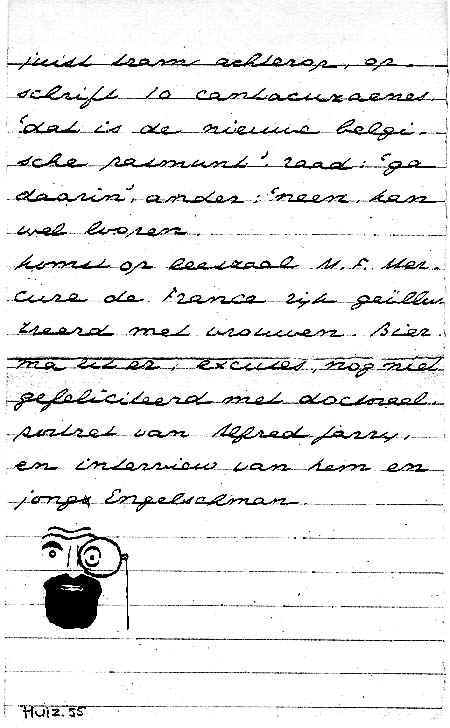 juist tram achterop, op-
schrift 10 cantacuzaenes.
'dat is de nieuwe belgi-
sche rasmunt'. raad: 'ga
daarin', ander: 'neen, kan
wel lopen.
komst op leeszaal M. F. Mer-
cure de France rijk geïllu-
treerd met vrouwen. Bier-
ma zit er, excuses, nog niet
gefeliciteerd met doctoraal.
portret van Alfred Jarry,
en interview van hem en
jonge Engelschman.
Huiz. 55